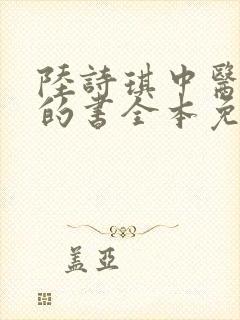 陸詩琪中醫
的書全本免
盖亞